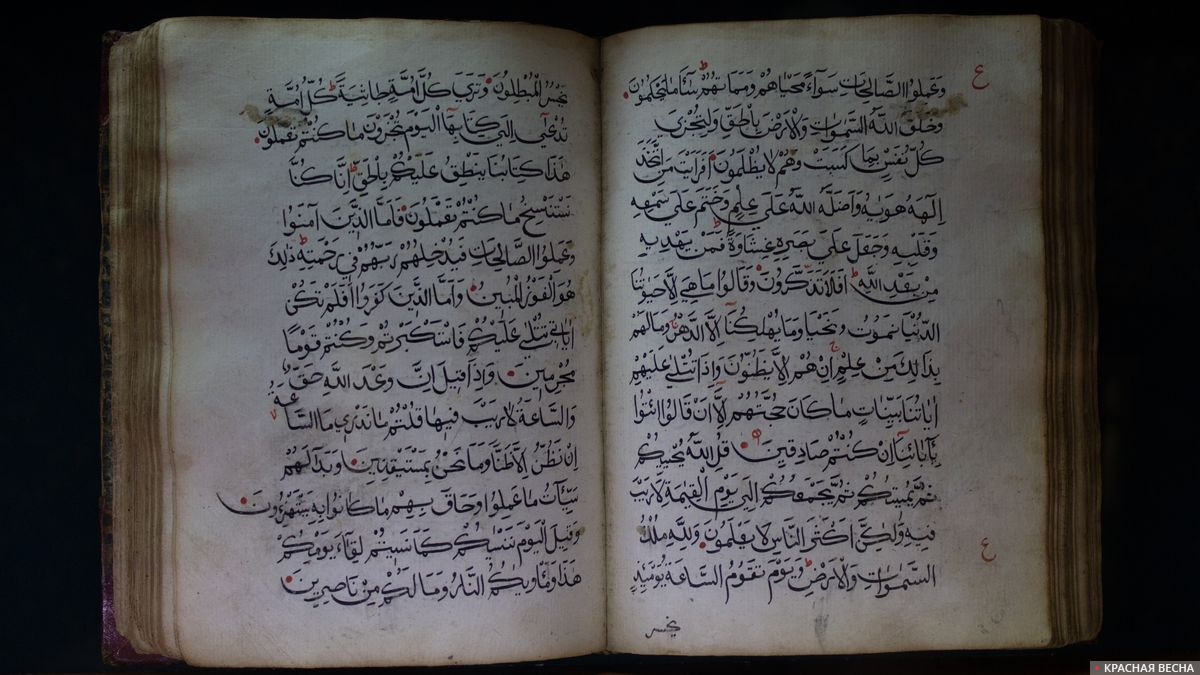 ع
وَعَمِلُوا الصَّالِحَاتِ سَوَآءً مَحْيَاهُمْ وَمَمَاتُهُمْ سَآءَ مَا يَحْكُمُونَ
وَخَلَقَ اللَّهُ السَّمٰوَاتِ وَالْاَرْضَ بِالْحَقِّ وَلِتُجْزٰى
كُلُّ نَفْسٍ بِمَا كَسَبَتْ وَهُمْ لَا يُظْلَمُونَ اَفَرَاَيْتَ مَنِ اتَّخَذَ
اِلٰهَهُ هَوٰيهُ وَاَضَلَّهُ اللَّهُ عَلٰى عِلْمٍ وَخَتَمَ عَلٰى سَمْعِهِ
وَقَلْبِهِ وَجَعَلَ عَلٰى بَصَرِهِ غِشَاوَةً فَمَنْ يَهْدِيهِ
مِنْ بَعْدِ اللَّهِ اَفَلَا تَذَكَّرُونَ وَقَالُوا مَا هِيَ اِلَّا حَيٰوتُنَا
الدُّنْيَا نَمُوتُ وَنَحْيَا وَمَا يُهْلِكُنَآ اِلَّا الدَّهْرُ وَمَا لَهُمْ
بِذٰلِكَ مِنْ عِلْمٍ اِنْ هُمْ اِلَّا يَظُنُّونَ وَاِذَا تُتْلٰى عَلَيْهِمْ
اٰيَاتُنَا بَيِّنَاتٍ مَا كَانَ حُجَّتَهُمْ اِلَّآ اَنْ قَالُوا ائْتُوا
بِاٰبَآئِنَآ اِنْ كُنْتُمْ صَادِقِينَ قُلِ اللَّهُ يُحْيِيكُمْ
ثُمَّ يُمِيتُكُمْ ثُمَّ يَجْمَعُكُمْ اِلٰى يَوْمِ الْقِيٰمَةِ لَا رَيْبَ
فِيهِ وَلٰكِنَّ اَكْثَرَ النَّاسِ لَا يَعْلَمُونَ وَلِلَّهِ مُلْكُ
ع
السَّمٰوَاتِ وَالْاَرْضِ وَيَوْمَ تَقُومُ السَّاعَةُ يَوْمَئِذٍ
يخسر
يَخْسَرُ الْمُبْطِلُونَ وَتَرٰى كُلَّ اُمَّةٍ جَاثِيَةً كُلُّ اُمَّةٍ
تُدْعٰٓى اِلٰى كِتَابِهَا الْيَوْمَ تُجْزَوْنَ مَا كُنْتُمْ تَعْمَلُونَ
هٰذَا كِتَابُنَا يَنْطِقُ عَلَيْكُمْ بِالْحَقِّ اِنَّا كُنَّا
نَسْتَنْسِخُ مَا كُنْتُمْ تَعْمَلُونَ فَاَمَّا الَّذِينَ اٰمَنُوا
وَعَمِلُوا الصَّالِحَاتِ فَيُدْخِلُهُمْ رَبُّهُمْ فِي رَحْمَتِهِ ذٰلِكَ
هُوَ الْفَوْزُ الْمُبِينُ وَاَمَّا الَّذِينَ كَفَرُوا اَفَلَمْ تَكُنْ
اٰيَاتِي تُتْلٰى عَلَيْكُمْ فَاسْتَكْبَرْتُمْ وَكُنْتُمْ قَوْمًا
مُجْرِمِينَ وَاِذَا قِيلَ اِنَّ وَعْدَ اللَّهِ حَقٌّ
وَالسَّاعَةُ لَا رَيْبَ فِيهَا قُلْتُمْ مَا نَدْرِي مَا السَّاعَةُ
اِنْ نَظُنُّ اِلَّا ظَنًّا وَمَا نَحْنُ بِمُسْتَيْقِنِينَ وَبَدَا لَهُمْ
سَيِّاٰتُ مَا عَمِلُوا وَحَاقَ بِهِمْ مَا كَانُوا بِهِ يَسْتَهْزِءُونَ
وَقِيلَ الْيَوْمَ نَنْسٰيكُمْ كَمَا نَسِيتُمْ لِقَآءَ يَوْمِكُمْ
هٰذَا وَمَاْوٰيكُمُ النَّارُ وَمَا لَكُمْ مِنْ نَاصِرِينَ
КРАСНАЯ ВЕСНА